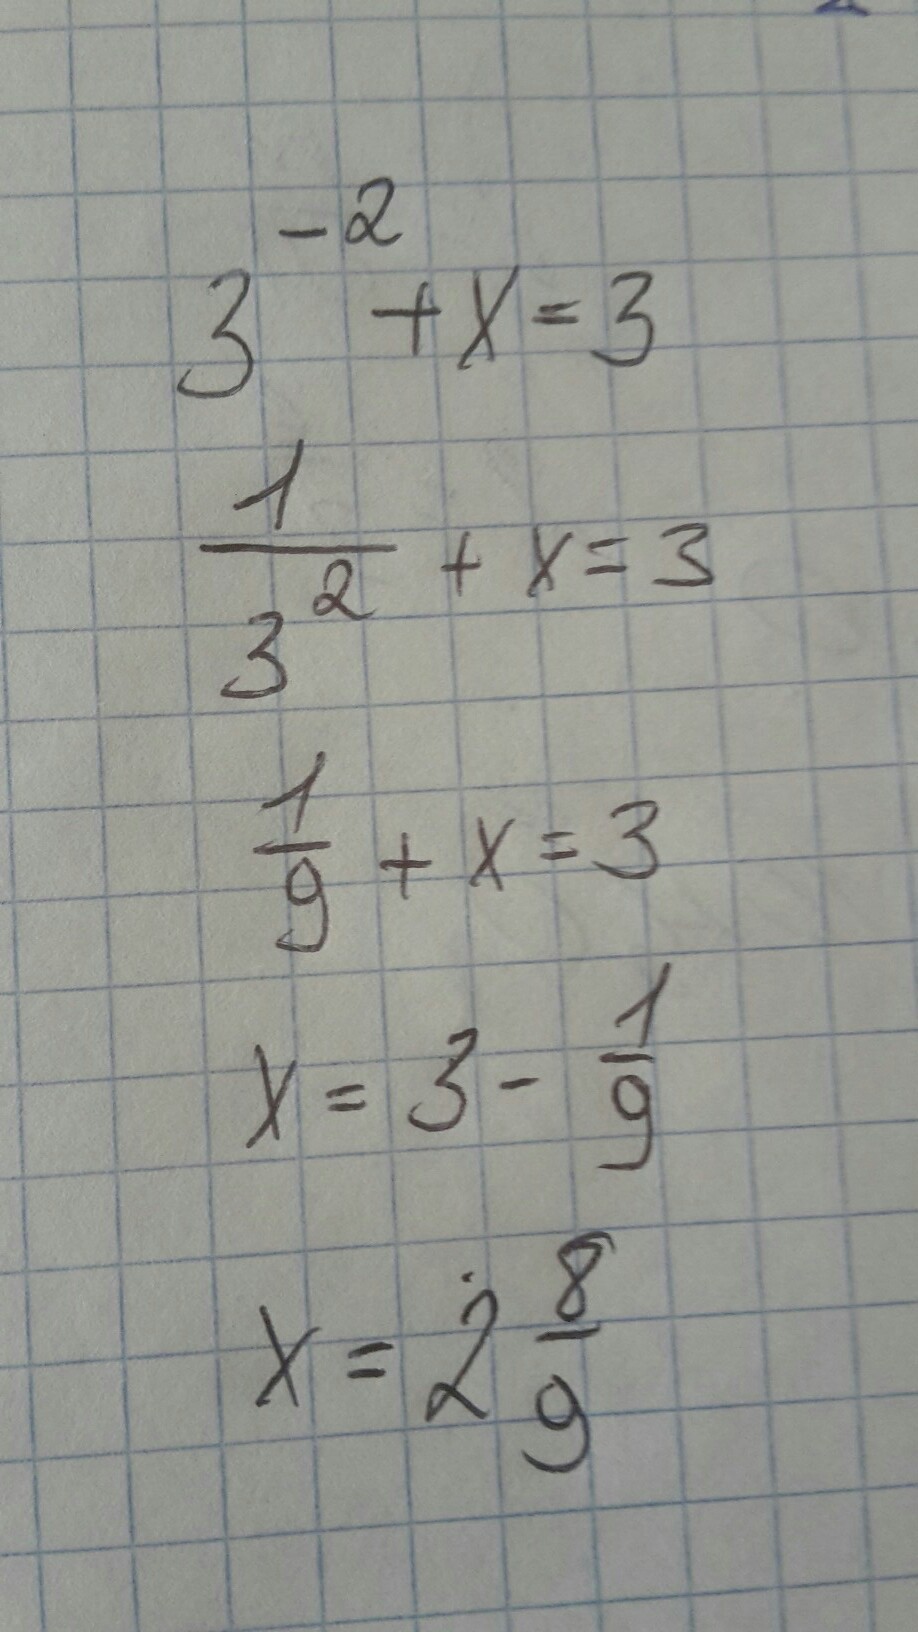 3⁻² + x = 3
1/3² + x = 3
1/9 + x = 3
x = 3 - 1/9
x = 2 8/9